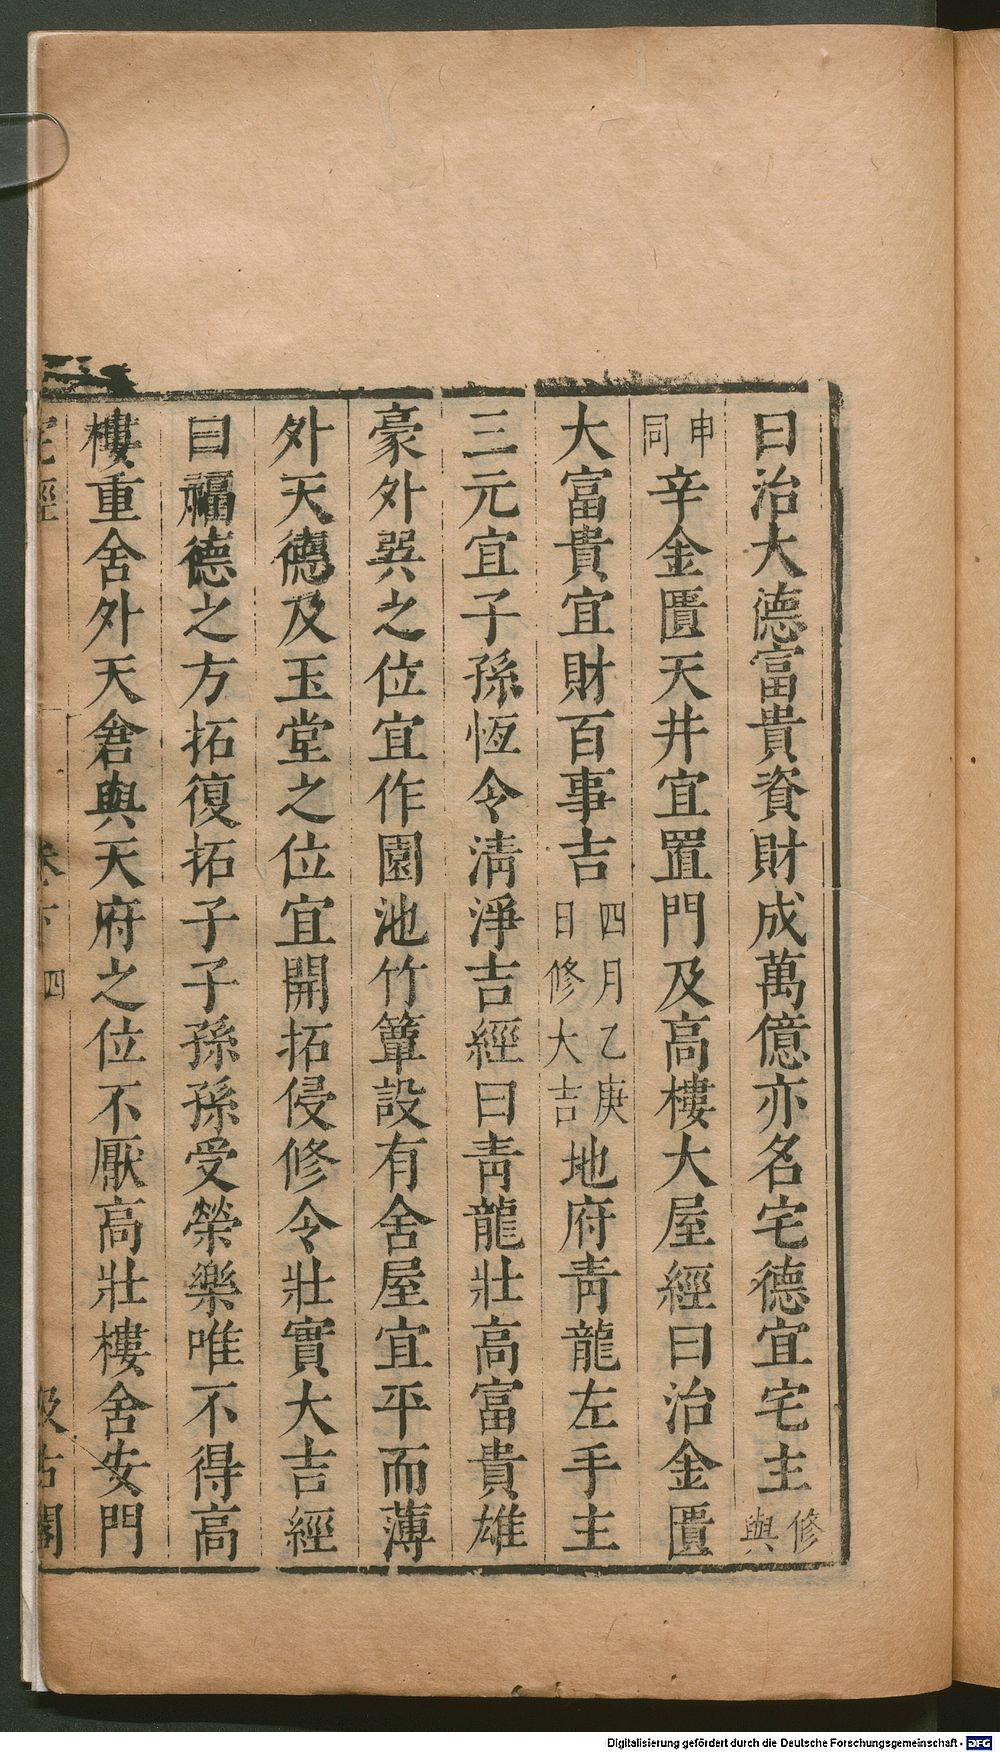 曰治大德富貴資財成萬億亦名宅德宜宅主修與
申同辛金匱天井宜置門及高樓大屋經曰治金匱
大富貴宜財百事吉四月乙庚日修大吉地府靑龍左手主
三元宜子孫恆令淸淨吉經曰靑龍壯高富貴雄
豪外巽之位宜作園池竹簟設有舍屋宜平而薄
外天德及玉堂之位宜開拓侵修令壯實大吉經
曰福德之方拓復拓子子孫孫受榮樂唯不得高
樓重舍外天倉與天府之位不厭高壯樓舍安門
宅經 卷下 四 汲古閣
Digitalisierung gefördert durch die Deutsche Forschungsgemeinschaft - DFG